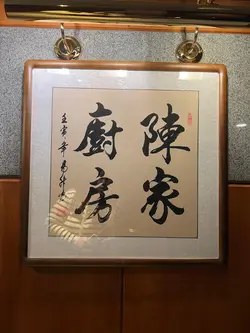 陳家
廚房
壬寅年